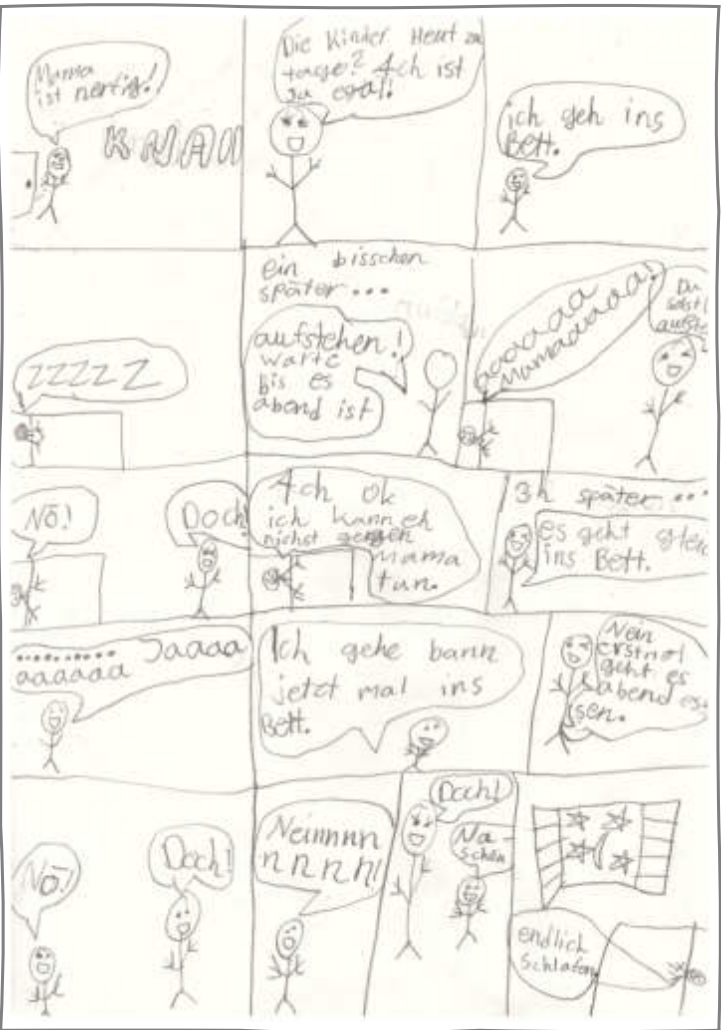 Mama
ist nertig!
KNALL
Die Kinder Heut zu
tage? Ach ist
ja egal!
ich geh ins
Bett.
ZZZZZ
ein bisschen
später...
aufstehen!
warte
bis es
abend ist
aaaaaaa
Mamaaaaaa!
Du
solst
Nö!
Doch!
Ach ok
ich kann eh
nichst gengen
Mama
tun.
3h später...
es geht gleic
ins Bett.
.......... Jaaaa
aaaaaa
Ich gehe bann
jetzt mal ins
Bett.
Nein
erstmol
geht es
abend es-
sen.
Nö!
Doch!
Neinnnn
nnnn!
Doch!
Na-
schön
endlich
Schlafen